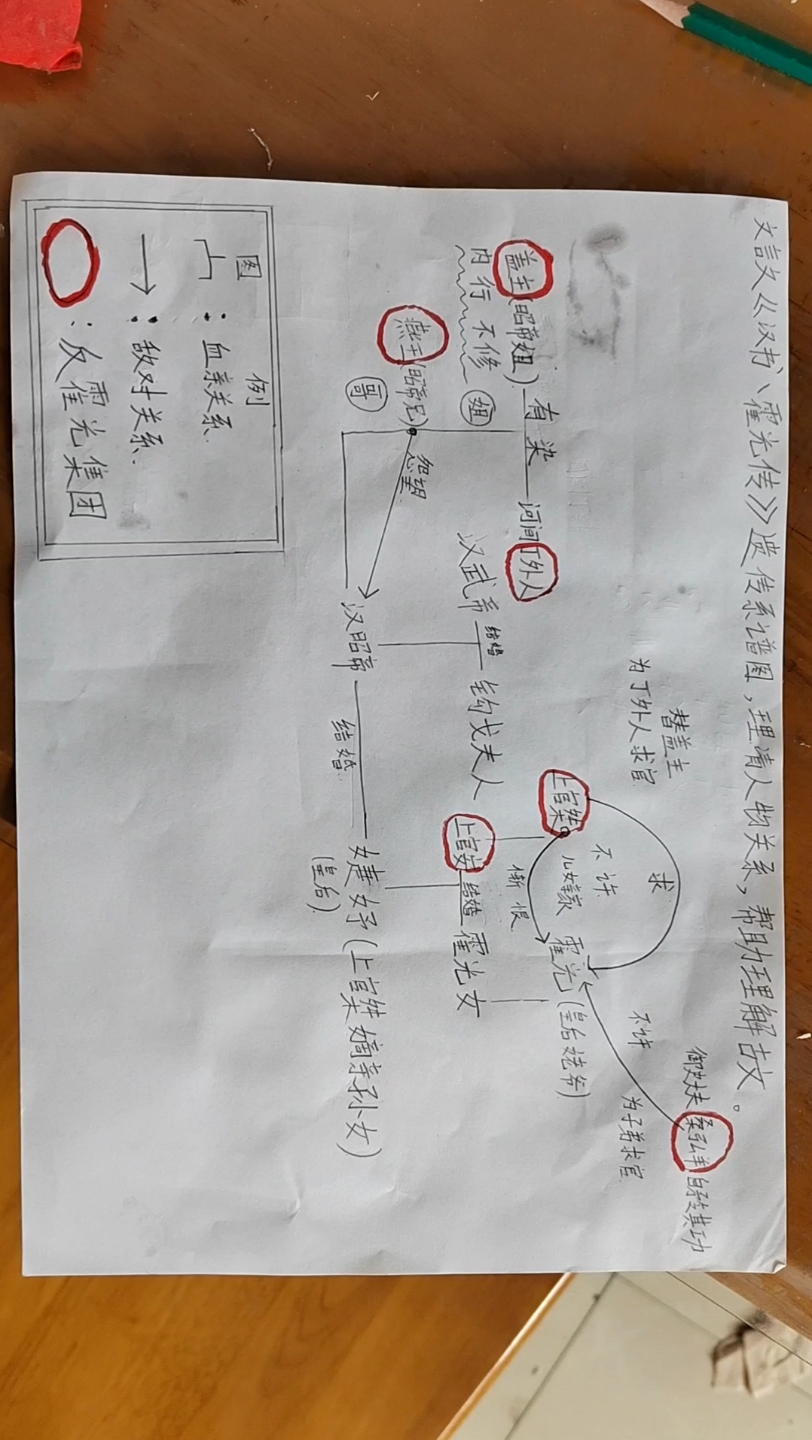 文言文《汉书、霍光传》遗传系谱图,理清人物关系,帮助理解古文。
替盖主
为丁外人求官
御史大夫桑弘羊自矜其功
求
不许
为子弟求官
盖主(昭帝姐)有染河间丁外人
内行不修
姐
上官桀
不许
儿女亲家
霍光(皇后姥爷)
惭恨
汉武帝结婚钩弋夫人
上官安结婚霍光女
燕王(昭帝兄)
怨望
哥
汉昭帝结婚婕妤(上官桀嫡亲孙女)
(皇后)
图例
:血亲关系.
:敌对关系.
:反霍光集团